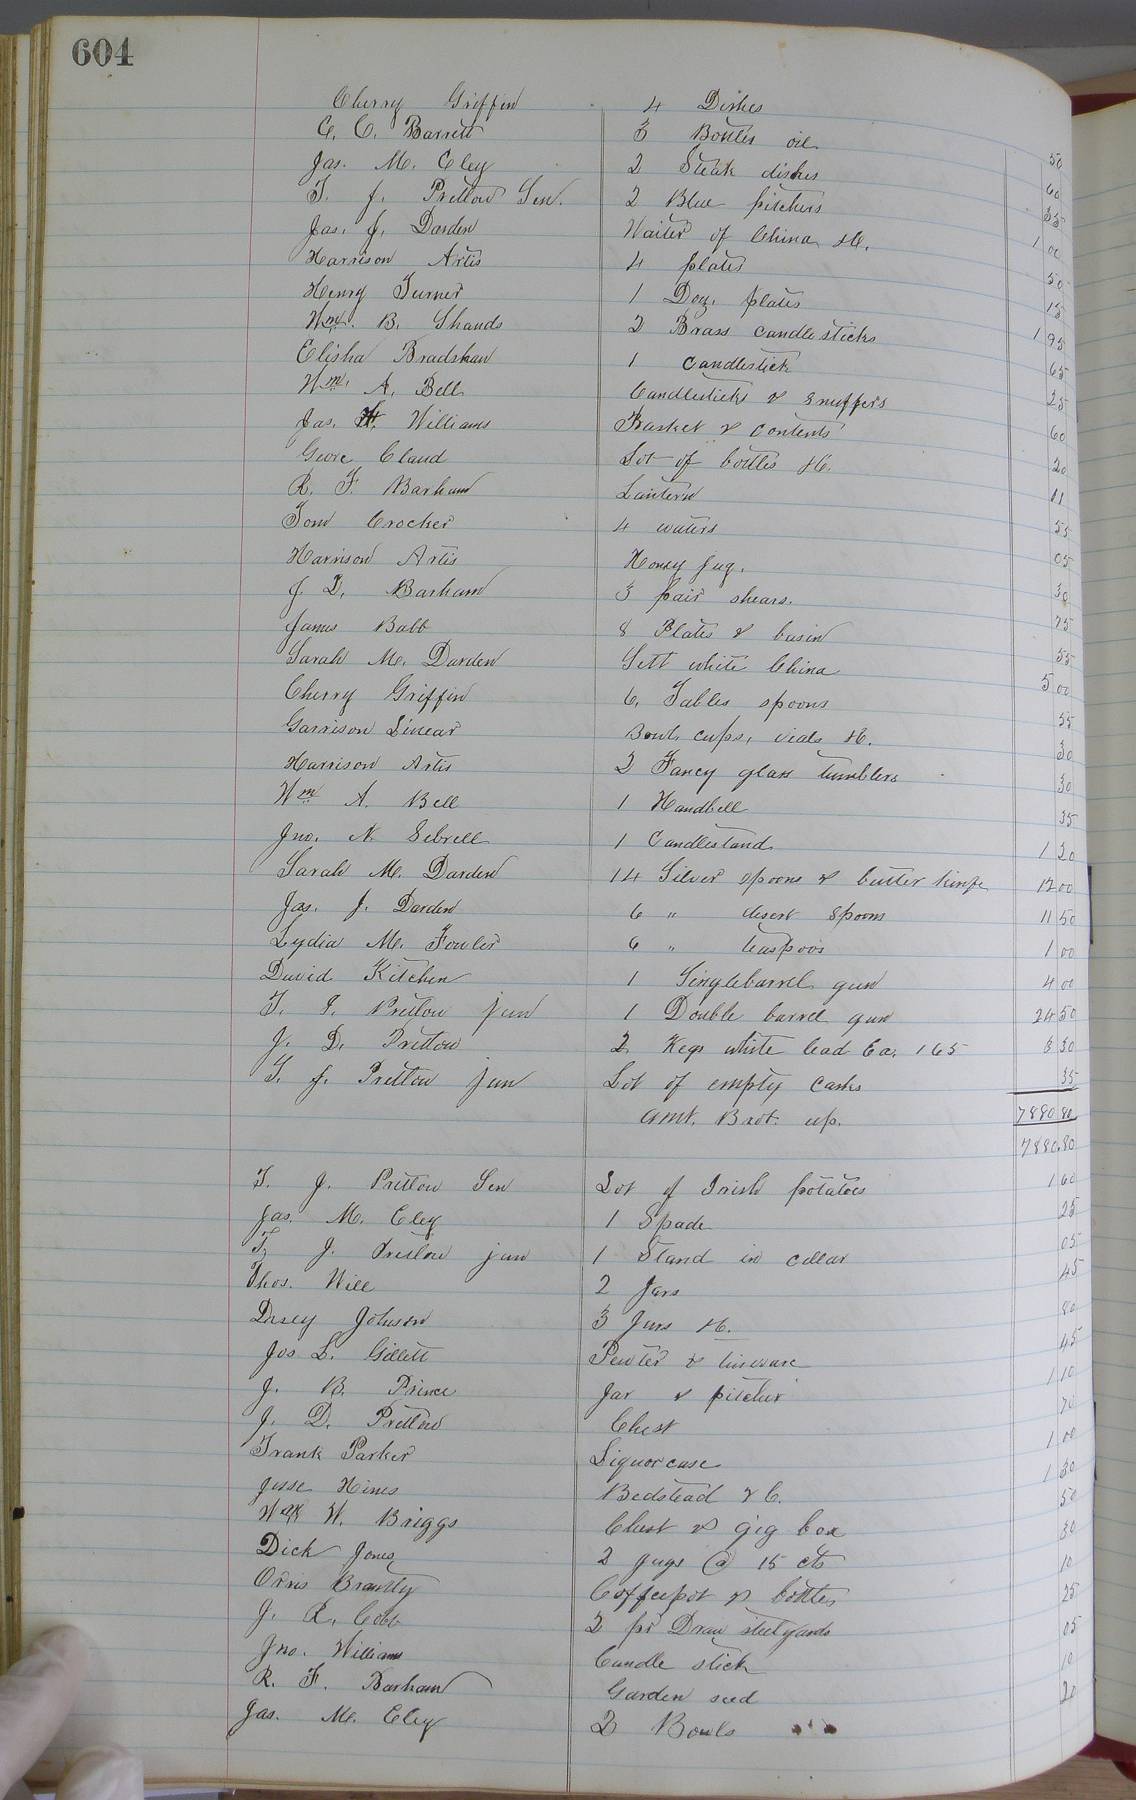 604
Cherry Griffin 4 Dishes 50
C. C. Barrett 3 Bottles oil 60
Jas. M. Eley 2 Steak dishes 35
T. J. Pretlow Sen. 2 Blue pitchers 1 00
Jas. J. Darden Waiter of China &c. 50
Harrison Artis 4 plates 15
Henry Turner 1 Doz. plates 1 95
Wm. B. Shands 2 Brass candlesticks 65
Elisha Bradshaw 1 Candlestick 25
Wm. A. Bell Candlesticks & snuffers 60
Jas. Williams Basket & contents 20
Geore Claud Lot of bottles &c. 01
R. F. Barham Lantern 55
Tom Crocker 4 waters 05
Harrison Artis Honey jug. 30
J. D. Barham 3 pair shears. 75
James Babb 8 Plates & basin 55
Sarah M. Darden Sett white China 5 00
Cherry Griffin 6. Tables spoons 55
Garrison Linear Bowl, cups, vials &c. 30
Harrison Artis 2 Fancy glass tumblers 30
Wm A. Bell 1 Handbell 35
Jno. N. Sebrell 1 Candlestand 1 20
Sarah M. Darden 14 Silver spoons & butter kinfe 12 00
Jas. J. Darden 6 " desert Spoons 11 50
Lydia M. Fowler 6 " teaspoos 1 00
David Kitchen 1 Singlebarrel gun 4 00
T. J. Pretlow jun 1 Double barrel gun 24 50
J. D. Pretlow 2 Kegs white lead Ea. 165 3 30
T. J. Pretlow jun Lot of empty casks 35
7880 80
amt. Brot. up. 7880.80
T. J. Pretlow Sen Lot of Irish potatoes 1 60
Jas. M. Eley 1 Spade 25
T. J. Pretlow jun 1 Stand in cellar 05
Thos. Will 2 Jars 45
Drsey Johnson 3 Jars &c. 80
Jos L. Gillett Pewter & tinware 45
J. B. Prince Jar & pitcher 1 10
J. D. Pretlow Chest 70
Frank Parker Liquor case 1 00
Jesse Hines Bedstead & C. 1 30
Wm W. Briggs Chest & gig box 50
Dick Jones 2 jugs @ 15 cts 30
Orris Brantly Coffeepot & bottles 10
J. R. Cobb 2 pr Draw steelyards 25
Jno. Williams Candle stick 05
R. F. Barham Garden seed 10
Jas. M. Eley 2 Bowls 20